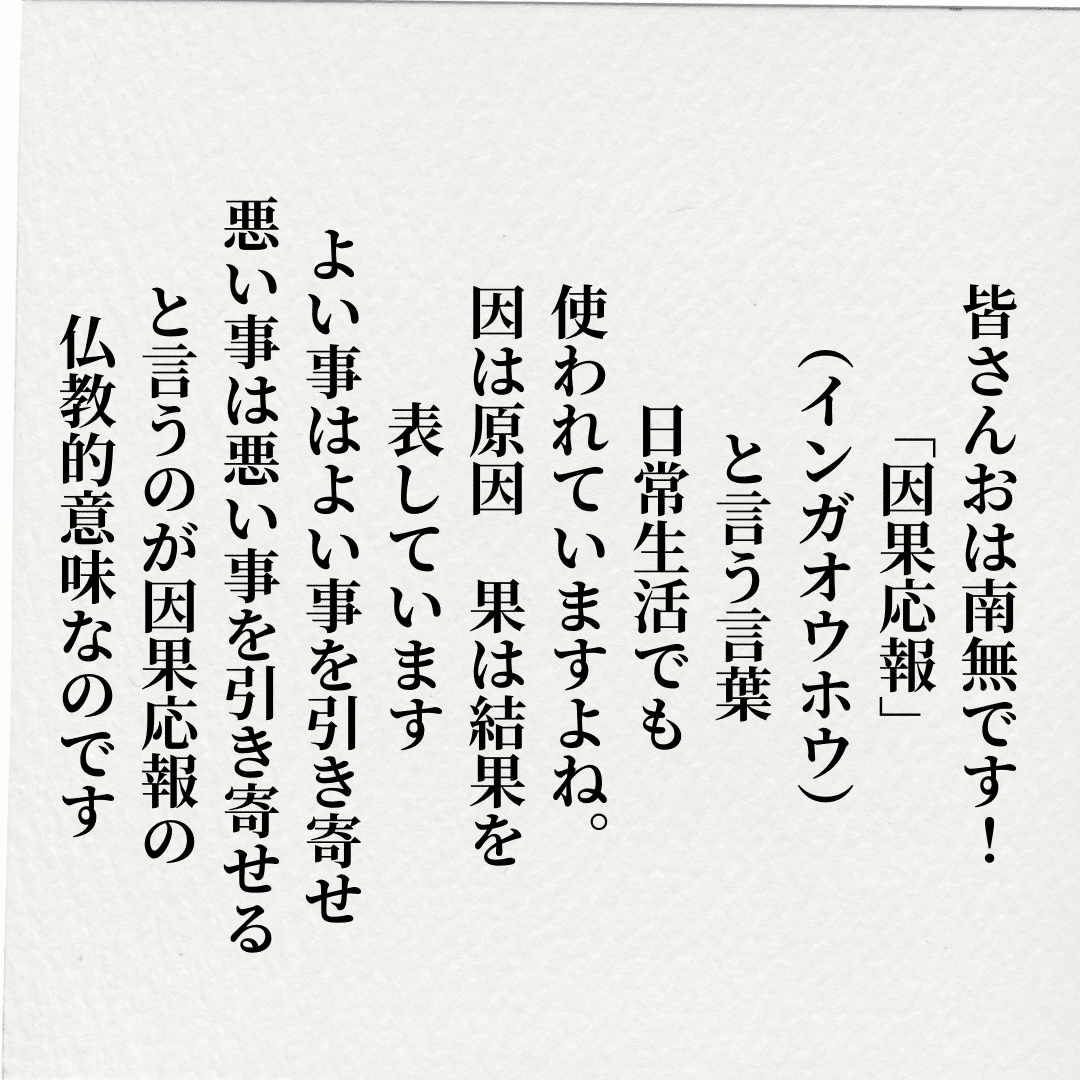 皆さんおは南無です！
「因果応報」
（インガオウホウ）
と言う言葉
日常生活でも
使われていますよね。
因は原因　果は結果を
表しています
よい事はよい事を引き寄せ
悪い事は悪い事を引き寄せる
と言うのが因果応報の
仏教的意味なのです